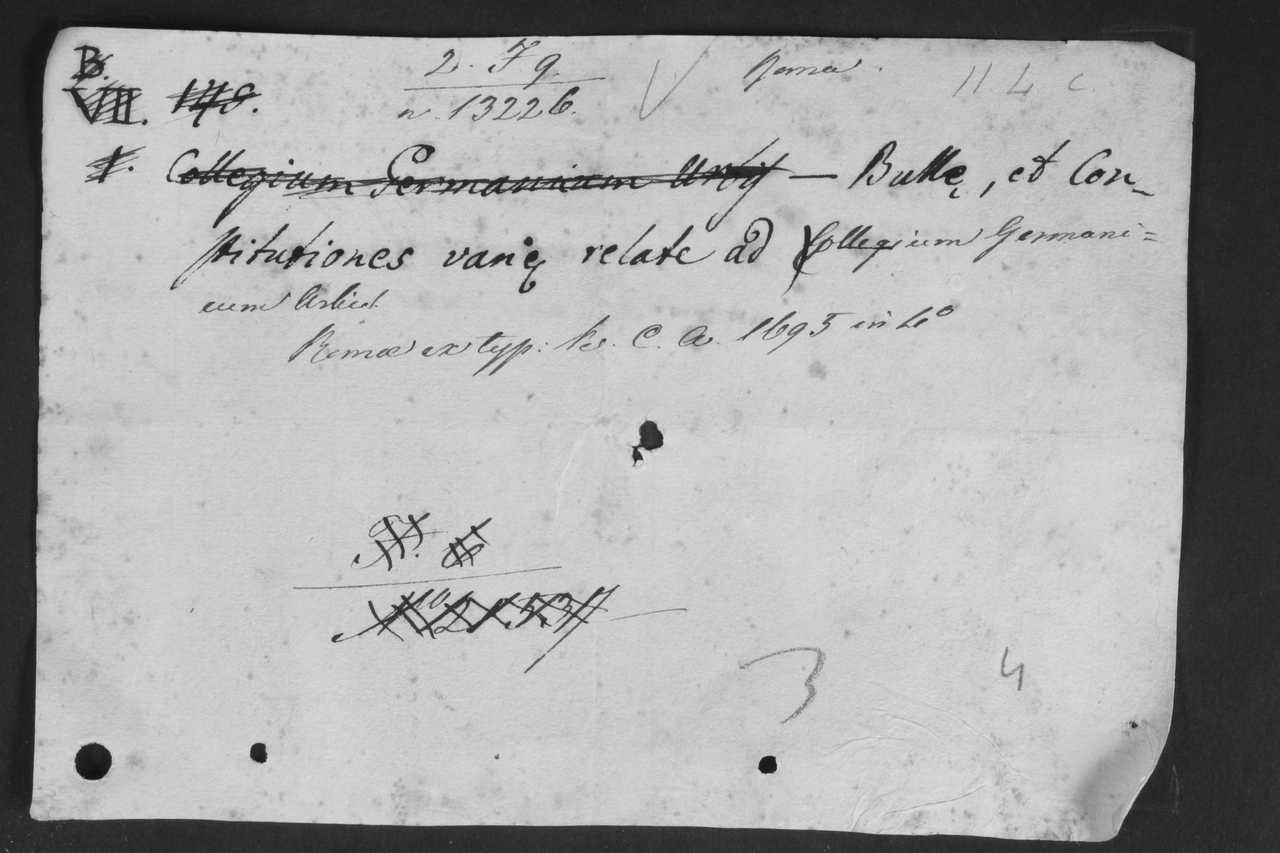 B.
VII. 148.
2. F q.
n. 13226.
Romæ.
114 c.
I. Collegium Germanicum Urbis — Bullę, et Con-
stitutiones varię relate ad Collegium Germani=
cum Urbis
Romæ ex typ: Re. C. A. 1695 in 4º
3
4